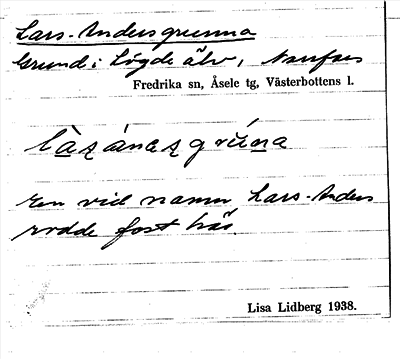 Lars-Andersgrunna
Grund i Lögde älv,
Fredrika sn, Åsele tg, Västerbottens l.
En vid namn Lars-Anders
rodde fast här.
Lisa Lidberg 1938.